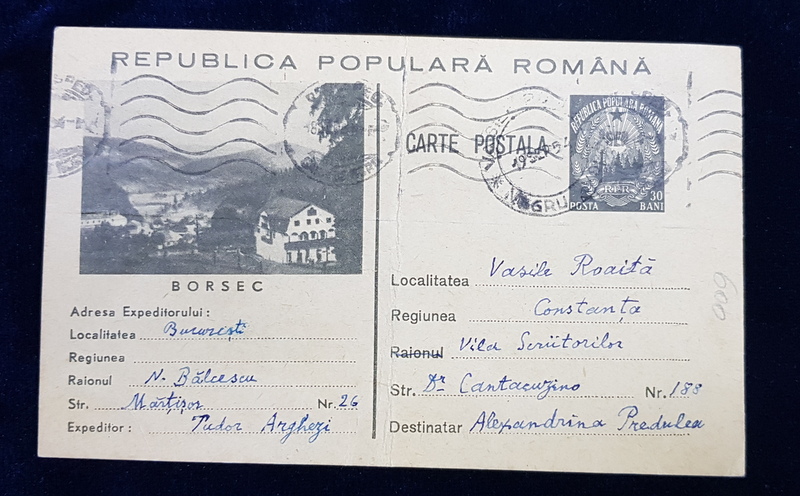 REPUBLICA POPULARĂ ROMÂNĂ
CARTE POȘTALĂ
REPUBLICA POPULARA ROMANA
RPR
POSTA 30 BANI
19 SEP 5
NEGRU
BORSEC
Adresa Expeditorului:
Localitatea București
Regiunea
Raionul N. Bălcescu
Str. Mărțișor Nr. 26
Expeditor: Tudor Arghezi
Localitatea Vasile Roaită
Regiunea Constanța
Raionul Vila Scriitorilor
Str. Dr Cantacuzino Nr. 188
Destinatar Alexandrina Predulea
600